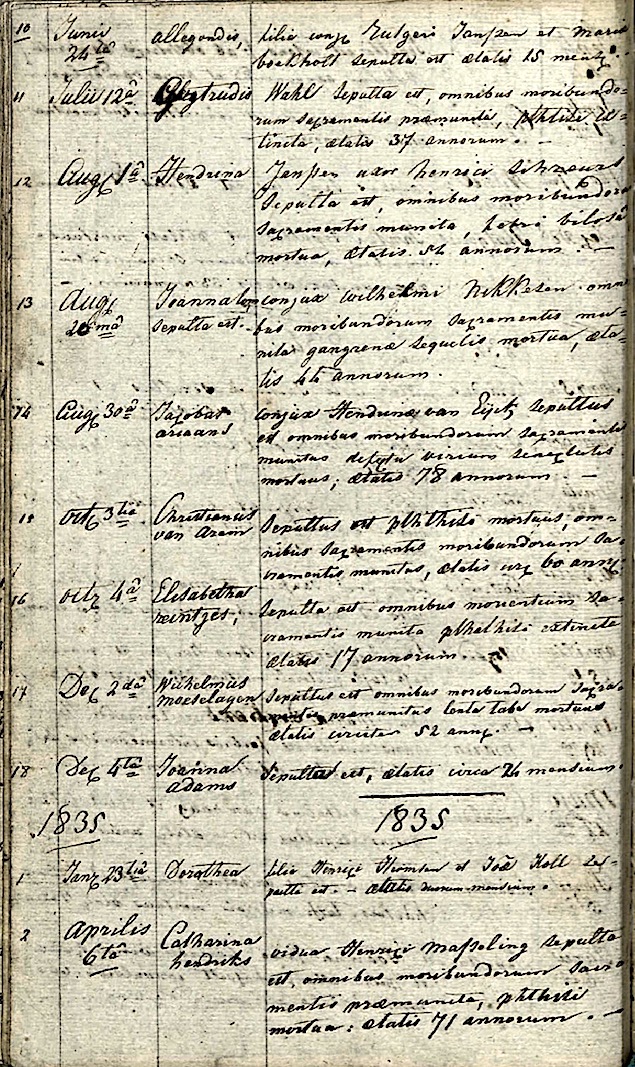 10 Junii allegondis, filia conj Rutgeri Janssen et Maria
24ta bockholt sepulta est ætatis 15 mens.
11 Julii 12a Gertrudis Wahl sepulta est, omnibus moribundo-
rum sacramentis præmunita, phthisi ex-
tincta, ætatis 37 annorum. -
12 Aug 1a Hendrina Janssen uxor henrici
sepulta est, omnibus moribundorum
sacramentis munita, febri biliosâ
mortua, ætatis 54 annorum. -
13 Aug Joanna conjux wilhelmi Nikkesen omni
26ma sepulta est. bus moribundorum sacramentis mu-
nita gangrenæ sequelis mortua, æta-
tis 44 annorum.
14 Aug 30a Jacobus conjux Hendrinæ van Eijck sepultus
ariaans est omnibus moribundorum sacramentis
munitus defectu virium senectutis
mortuus, ætatis 78 annorum -
15 octb 3tia Christianus sepultus est phthisi mortuus, om-
van Aram nibus sacramentis moribundorum sa-
cramentis munitus, ætatis circ 60 ann
16 octb 4a Elisabetha sepulta est omnibus morientium sa-
reintjes, cramentis munita phthisi extincta
ætatis 17 annorum
17 Dec 2da Wilhelmus sepultus est omnibus moribundorum sacra
moeselagen mentis præmunitus lenta tabe mortuus
ætatis circiter 52 ann. -
18 Dec 4ta Joanna sepulta est, ætatis circa 24 mensium.
adams
1835 1835
1 Jan 23tia Dorothea filia Henrici et Joæ Holl se-
pulta est. - ætatis duorum mensium.
2 Aprilis Catharina vidua Henrici Masseling sepulta
6ta hendriks est, omnibus moribundorum sacra
mentis præmunita, phthisi
mortua : ætatis 71 annorum. -